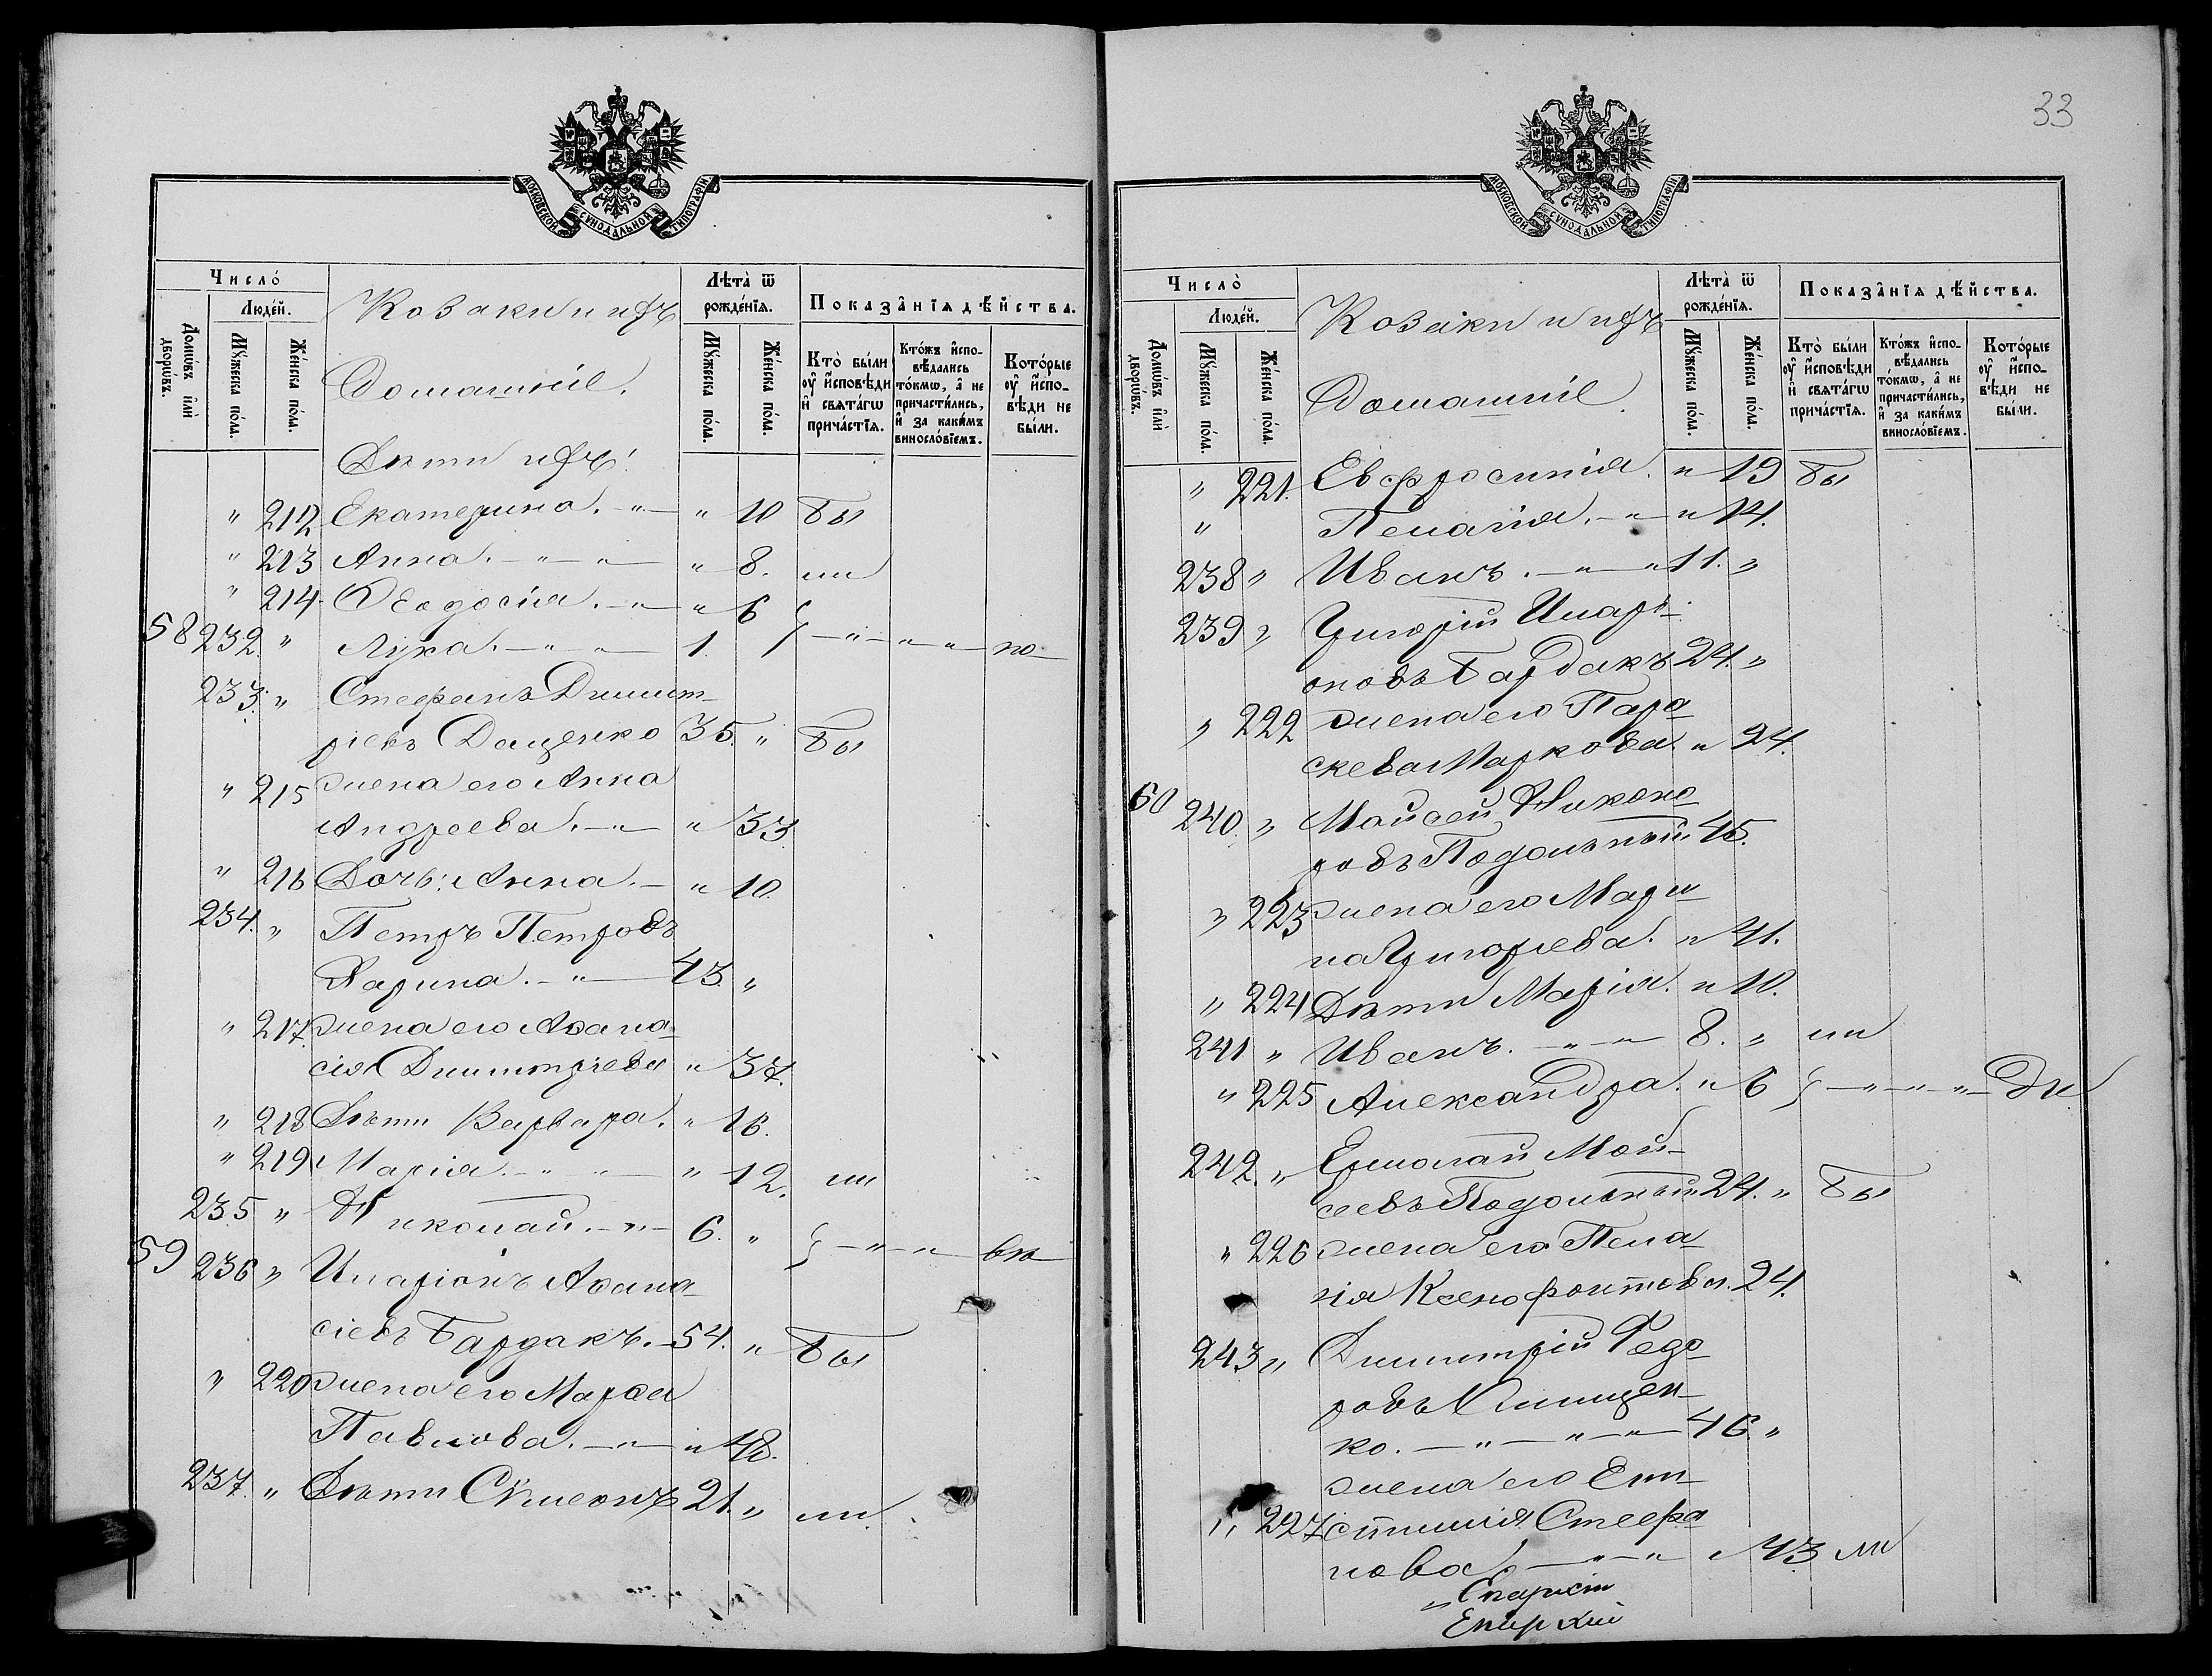 МОСКОВСКОЙ СѴНОДАЛЬНОЙ ТИПОГРАФІИ
Число̀
Людей.
Домѡ́въ и҆лѝ дворѡ́въ.
Мꙋ́жеска по́ла.
Же́нска по́ла.
Козаки и ихъ
Домашніе.
Лѣта̀ ѿ рожде́нїѧ.
Мꙋ́жеска по́ла.
Же́нска по́ла.
Показа̂нїѧ дѣ́йства.
Кто̀ бы́ли ᲂу҆ и҆сповѣди и҆ свѧта́гѡ прича́стїѧ.
Кто́жъ и҆спо-вѣдались то́кмѡ, а҆ не причасти́лись, и҆ за каки́мъ винослоႀвїемъ.
Кото́рые ᲂу҆ и҆спо-вѣди не бы́ли.
Дѣти ихъ:
" 212 Екатерина. " " 10 бы
" 213 Анна. " " " 8. ли
" 214 Ѳеодосія. " " 6
58 232. " Лука. " " 1. " " " по
233. " Стефанъ Димит-
ріевъ Даценко 35. " бы
" 215 жена его Анна
Андреева. " " 33.
" 216 Дочь: Анна. " 10.
234. " Петръ Петровъ
Ларина. " 43. "
" 217. жена его Аѳана-
сія Димитріева " 37.
" 218 Дѣти Варвара. " 16.
" 219 Марія. " " " 12. ли
235 " Николай. " 6. " " " вѣ
59 236 " Иларіонъ Аѳана-
сіевъ Бардакъ. 54. " бы
" 220 жена его Марѳа
Павлова. " " 48.
237. " Дѣти Сѵмеонъ 21. " ли.
33
МОСКОВСКОЙ СѴНОДАЛЬНОЙ ТИПОГРАФІИ
Число̀
Людей.
Домѡ́въ и҆лѝ дворѡ́въ.
Мꙋ́жеска по́ла.
Же́нска по́ла.
Козаки и ихъ
Домашніе.
Лѣта̀ ѿ рожде́нїѧ.
Мꙋ́жеска по́ла.
Же́нска по́ла.
Показа̂нїѧ дѣ́йства.
Кто̀ бы́ли ᲂу҆ и҆сповѣди и҆ свѧта́гѡ прича́стїѧ.
Кто́жъ и҆спо-вѣдались то́кмѡ, а҆ не причасти́лись, и҆ за каки́мъ винословїемъ.
Кото́рые ᲂу҆ и҆спо-вѣди не бы́ли.
" 221. Евфросинія. " 19 бы
" Пелагія. " " 14.
238 " Иванъ. " " 11. "
239 " Григорій Илари-
оновъ Бардакъ 24. "
" 222 жена его Пара-
скева Маркова. " 24.
60 240. " Мойсей Никано-
ровъ Подольный 45.
" 223 жена его Мари-
на Григорьева. " 41.
" 224 Дѣти Марія. " 10.
241 " Иванъ. " " 8. " ли
" 225 Александра. " 6 " " " ди
242. " Ермолай Мой-
сеевъ Подольный 24. " бы
" 226 жена его Пела-
гія Ксенофонтова. 24.
243 " Димитрій Ѳедо-
ровъ Клищен-
ко. " " " 46 "
жена его Епи-
" 227 стимія Стефа-
нова. " " " 43 ли